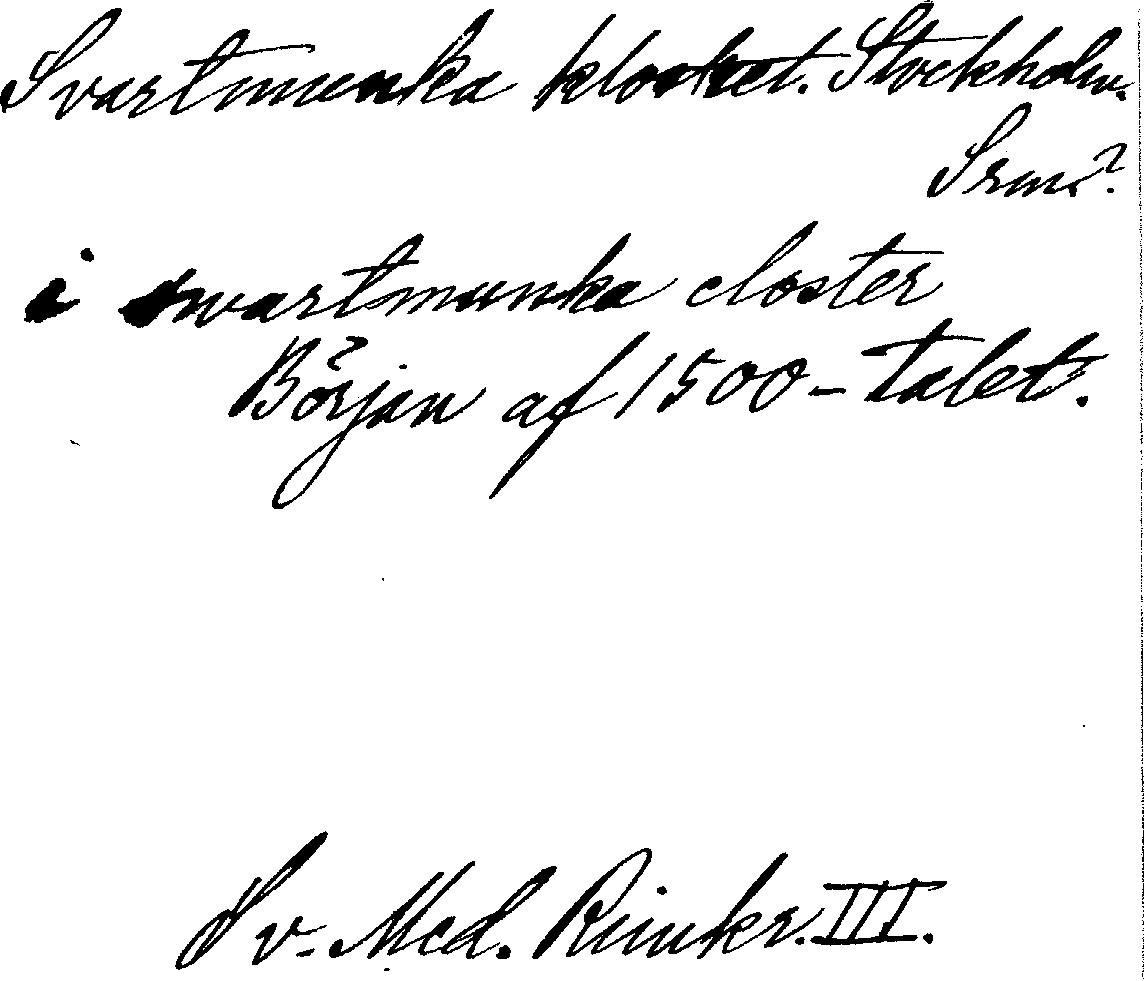 Svartmunka klostret. Stockholm.
Srm?
i swartmunka closter
Början af 1500-talet.
Sv. Med. Rimkr. III.